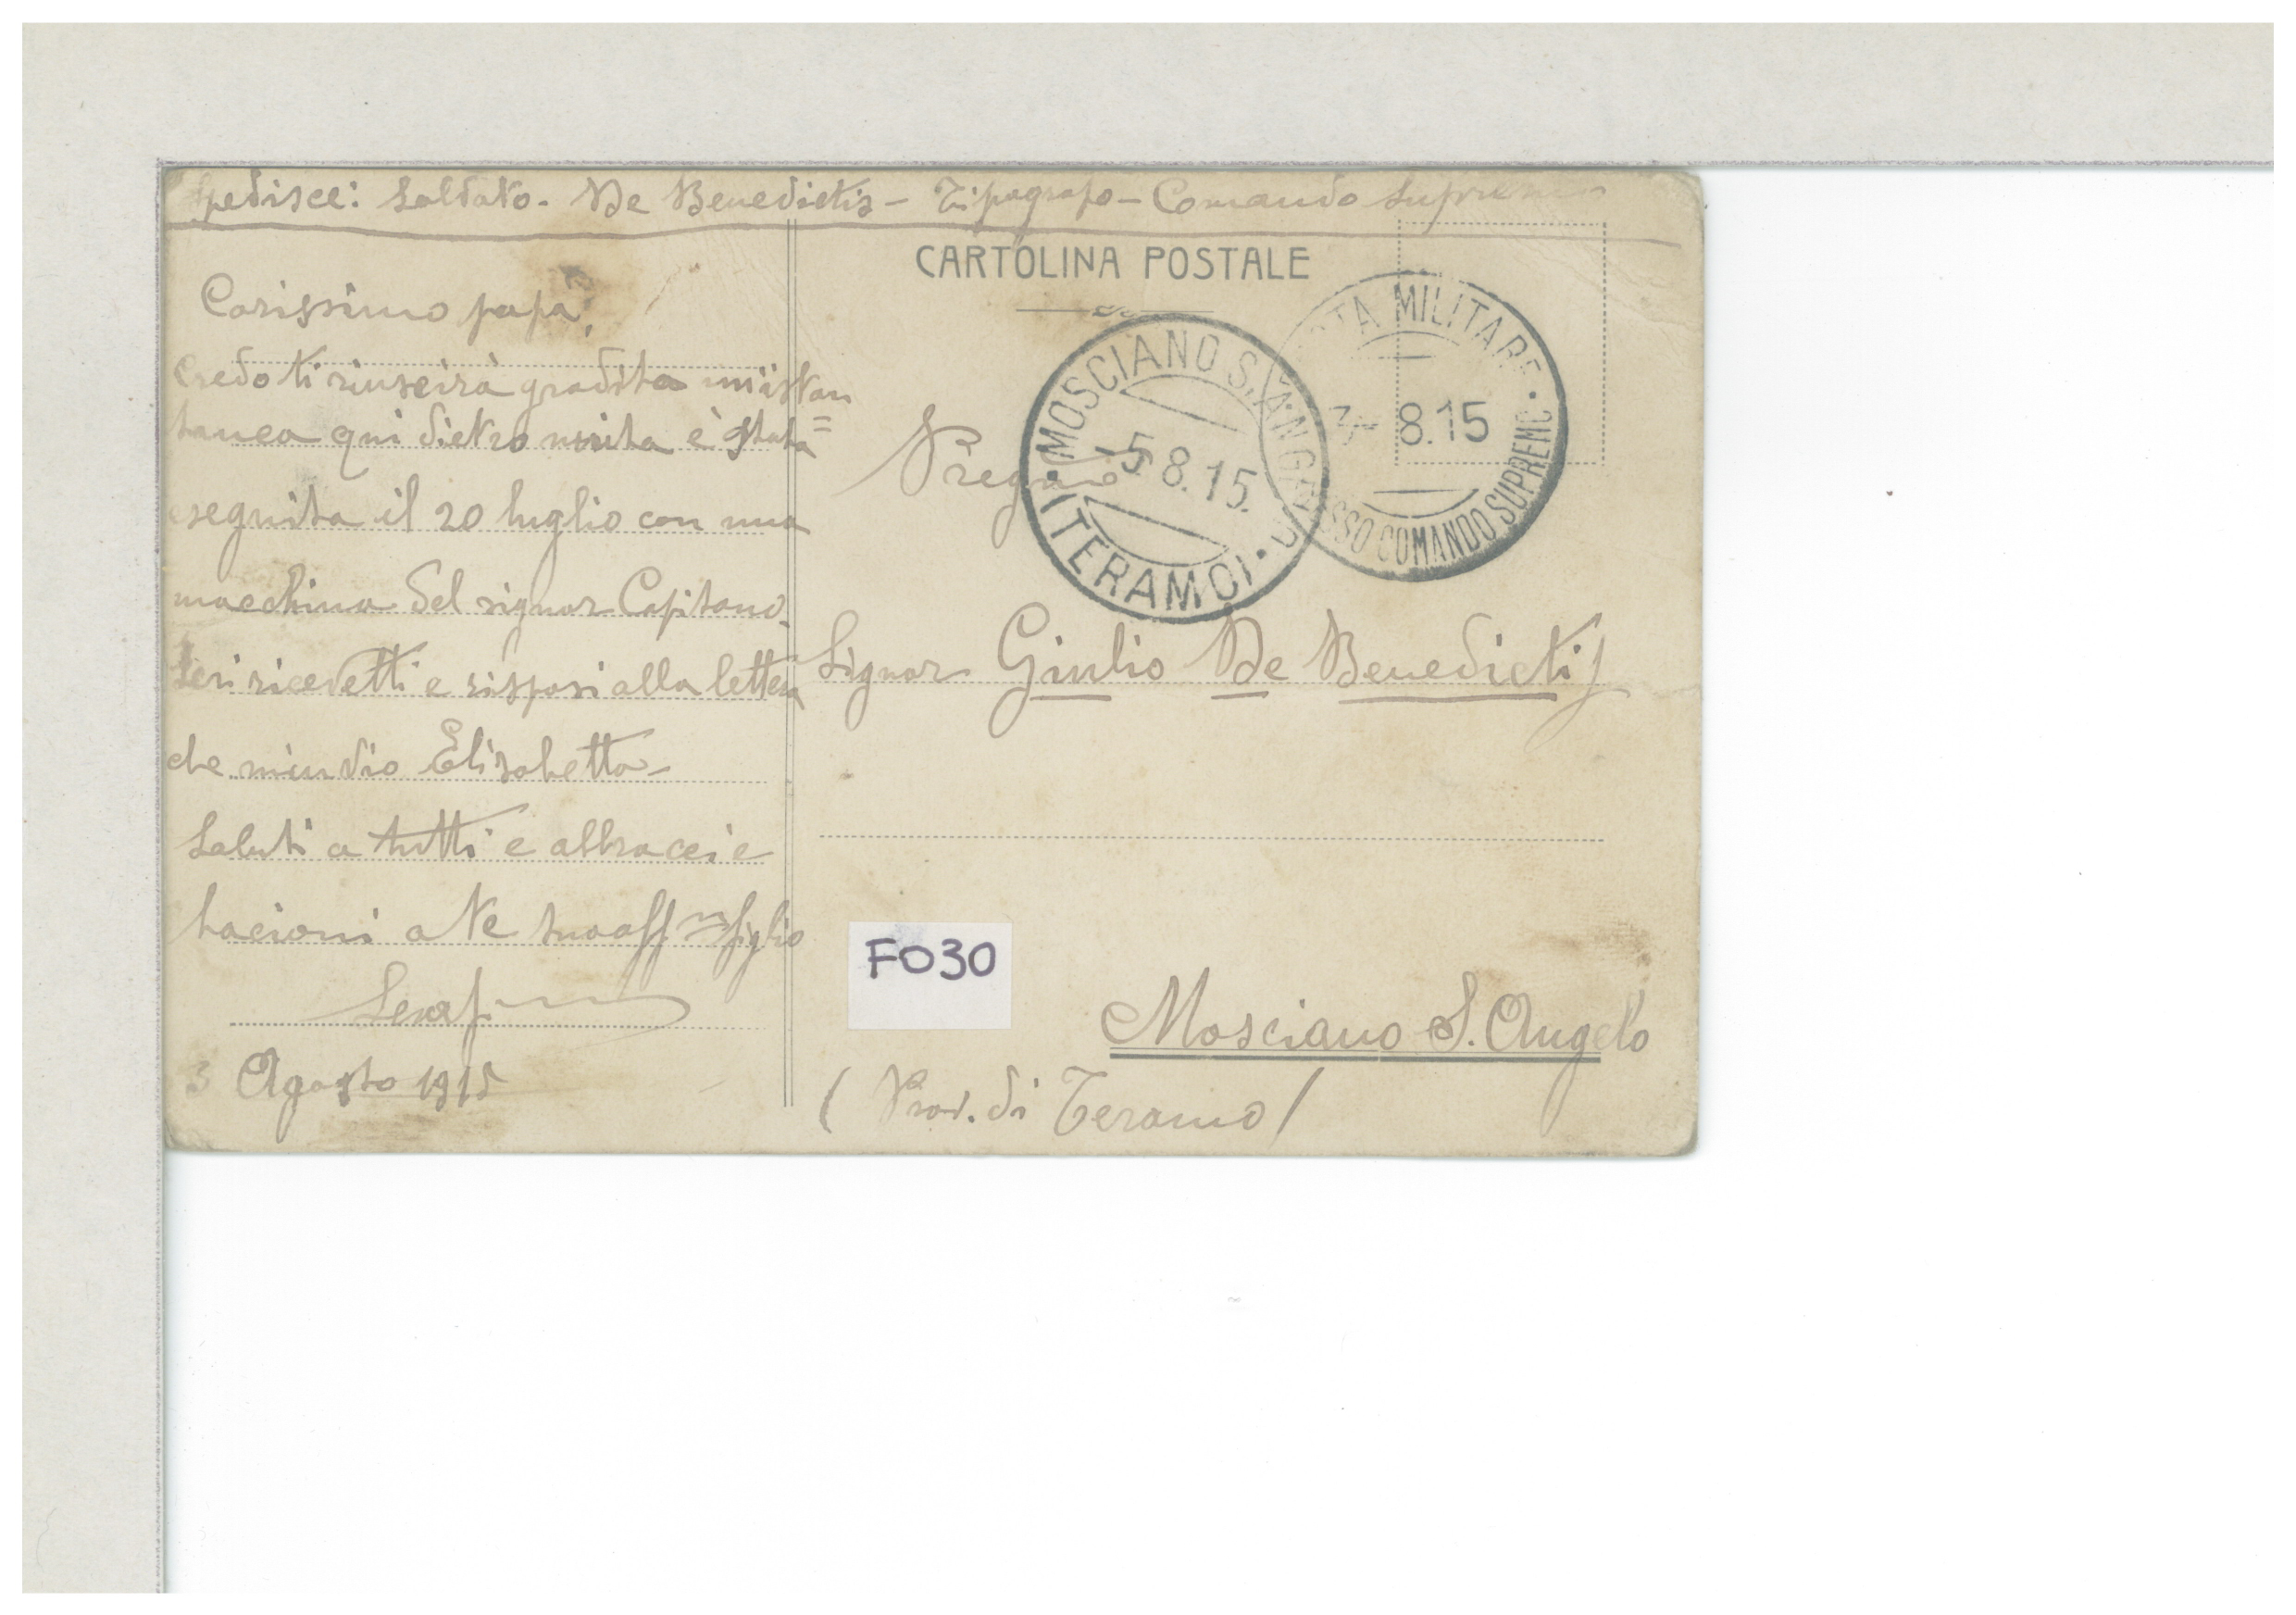 Spedisce: Soldato. De Benedictis - Tipografo - Comando Supremo
Carissimo papà,
Credo ti riuscirà gradita un'istan
tanea qui dietro unita è stata
eseguita il 20 luglio con una
macchina del signor Capitano.
Ieri ricevetti e risposi alla lettera
che m'inviò Elisabetta -
Saluti a tutti e abbracci e
bacioni a te tuo aff.mo figlio
Serafino
3 Agosto 1915
CARTOLINA POSTALE
POSTA MILITARE
3 8.15
PRESSO COMANDO SUPREMO
MOSCIANO S. ANGELO
-5 8.15.
(TERAMO)
Pregmo
Signor Giulio De Benedictis
F030
Mosciano S. Angelo
(Prov. di Teramo)